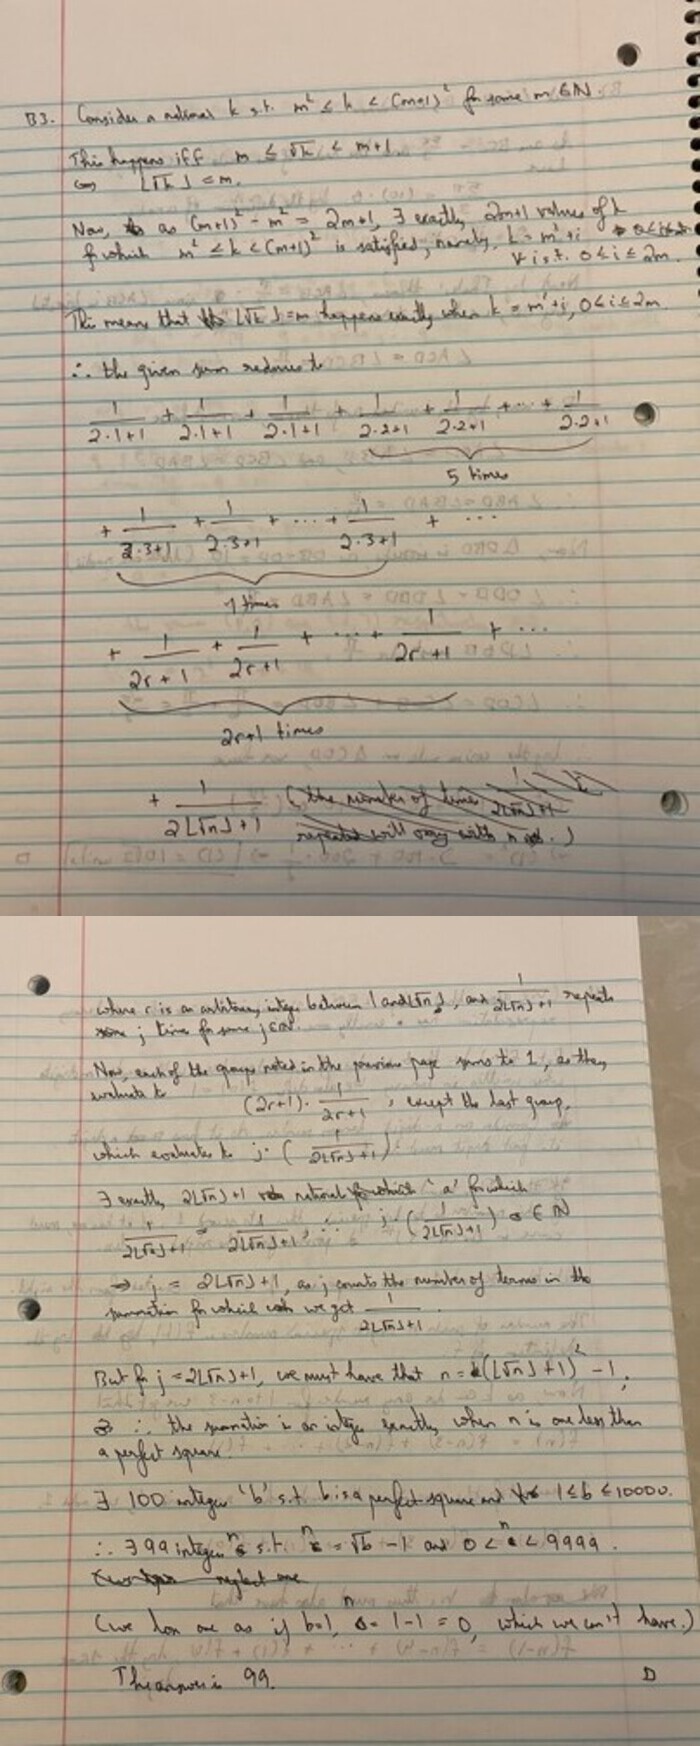 B3. Consider a natural k s.t. m² ≤ k < (m+1)² for some m ∈ N.
This happens iff m ≤ √k < m+1
⟺ ⌊√k⌋ = m.
Now, as (m+1)² - m² = 2m+1, ∃ exactly 2m+1 values of k
for which m² ≤ k < (m+1)² is satisfied, namely, k = m²+i
∀ i s.t. 0 ≤ i ≤ 2m.
This means that ⌊√k⌋ = m happens exactly when k = m²+i, 0 ≤ i ≤ 2m
∴ the given sum reduces to
1/(2·1+1) + 1/(2·1+1) + 1/(2·1+1) + 1/(2·2+1) + 1/(2·2+1) + ... + 1/(2·2+1)
5 times
+ 1/(2·3+1) + 1/(2·3+1) + ... + 1/(2·3+1) + ...
7 times
+ 1/(2r+1) + 1/(2r+1) + ... + 1/(2r+1) + ...
2r+1 times
+ 1/(2⌊√n⌋+1) (the number of times 1/(2⌊√n⌋+1)
repeated will vary with n .)
where r is an arbitrary integer between 1 and ⌊√n⌋, and 1/(2⌊√n⌋+1) repeats
some j times for some j ∈ N.
Now, each of the groups noted in the previous page sums to 1, as they
evaluate to (2r+1) · 1/(2r+1), except the last group,
which evaluates to j · (1/(2⌊√n⌋+1))
∃ exactly 2⌊√n⌋+1 natural for which 'a' for which
1/(2⌊√n⌋+1) 1/(2⌊√n⌋+1) ∴ j · (1/(2⌊√n⌋+1)) ∈ N
⇒ j = 2⌊√n⌋+1, as j counts the number of terms in the
summation for which we get 1/(2⌊√n⌋+1).
But for j = 2⌊√n⌋+1, we must have that n = (⌊√n⌋+1)² - 1,
∴ the summation is an integer exactly when n is one less than
a perfect square.
∃ 100 integers 'b' s.t. b is a perfect square and 1 ≤ b ≤ 10000.
∴ ∃ 99 integers n s.t. n = √b - 1 and 0 < n < 9999.
neglect one
(we lose one as if b=1, n = 1-1 = 0, which we can't have.)
The answer is 99.